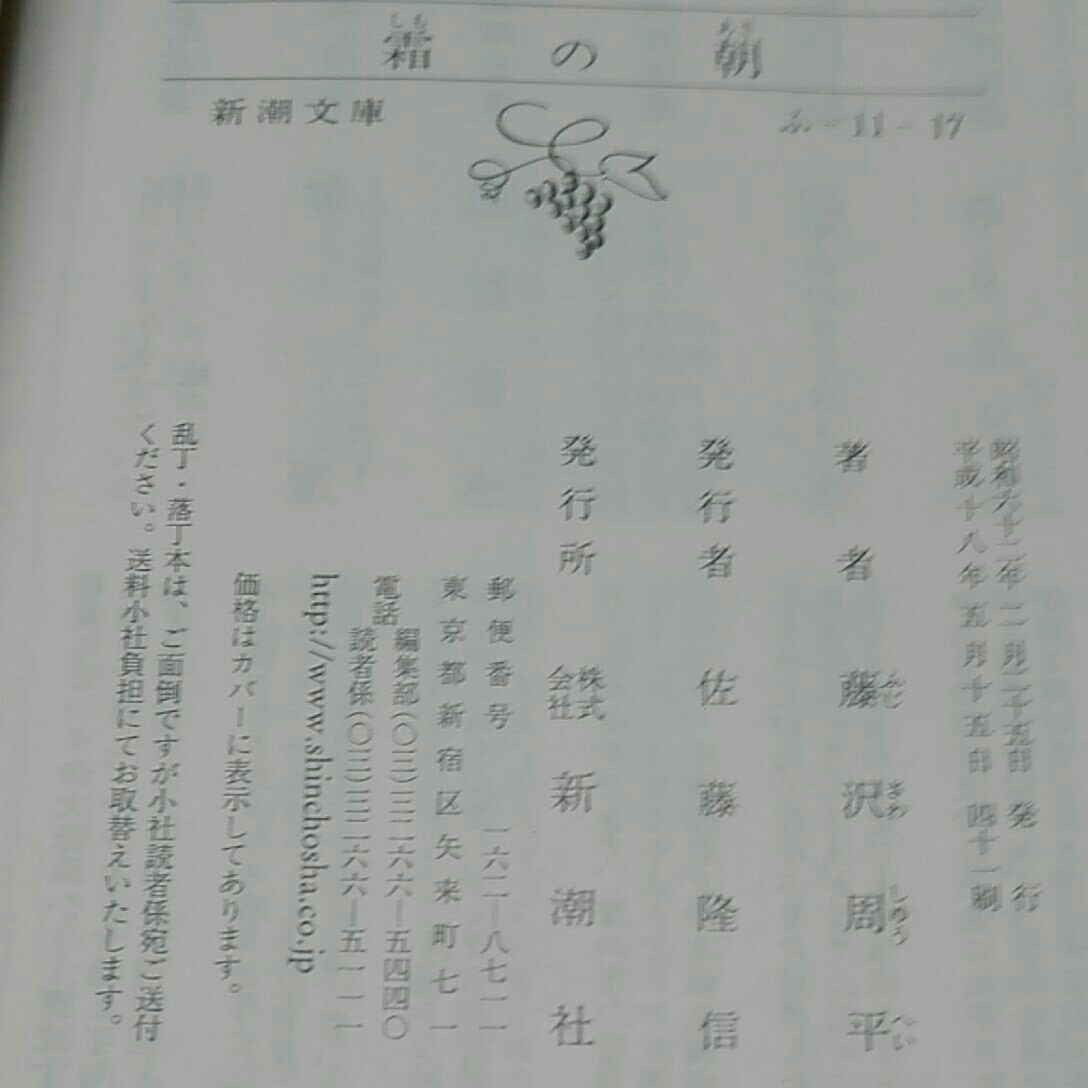 霜の朝
新潮文庫
ふ-11-17
昭和六十二年二月二十五日発行
平成十八年五月十五日四十一刷
著者 藤沢周平
発行者 佐藤隆信
発行所 株式会社 新潮社
郵便番号 一六二―八七一一
東京都新宿区矢来町七一
電話 編集部(〇三)三二六六―五四四〇
読者係(〇三)三二六六―五一一一
http://www.shinchosha.co.jp
価格はカバーに表示してあります。
乱丁・落丁本は、ご面倒ですが小社読者係宛ご送付
ください。送料小社負担にてお取替えいたします。